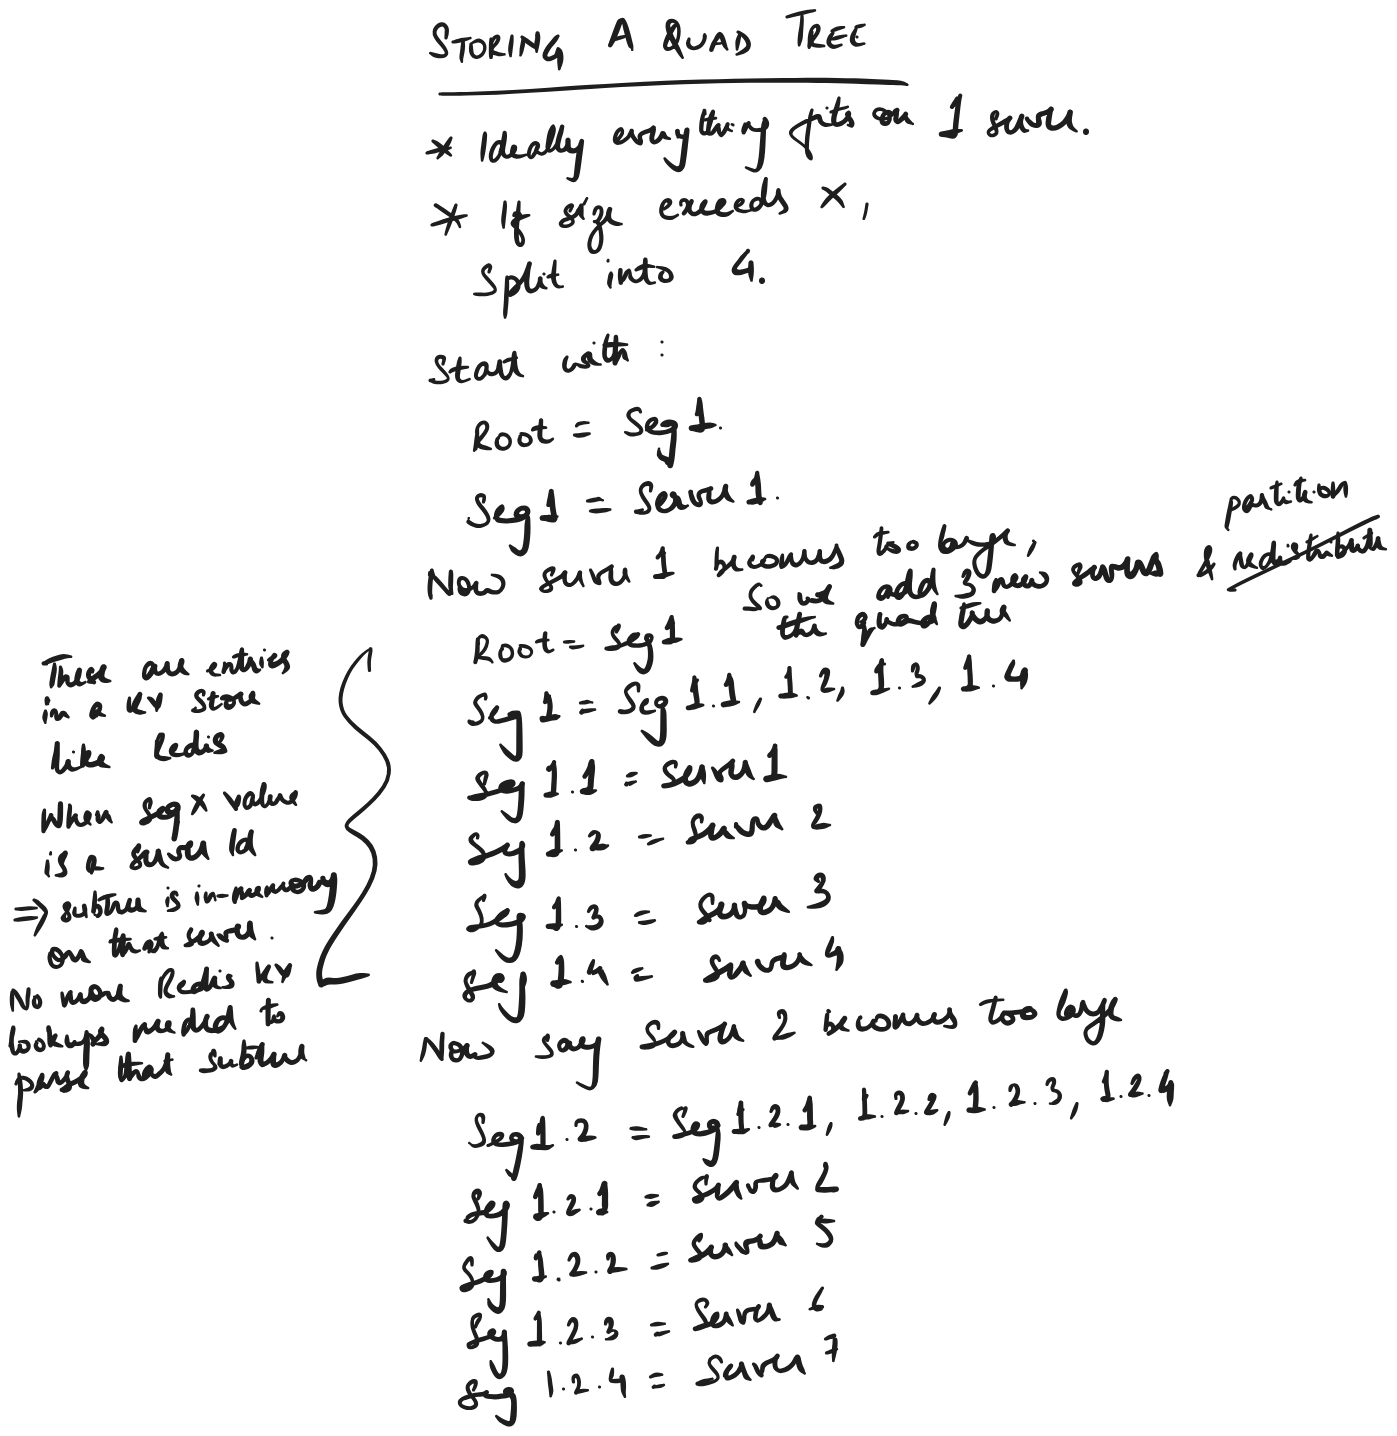 STORING A QUAD TREE
* Ideally everything fits on 1 server.
* If size exceeds X,
Split into 4.
Start with :
Root = Seg 1.
Seg 1 = Server 1.
Now server 1 becomes too large,
So we add 3 new servers & redistribute partition
the quad tree
Root = Seg 1
Seg 1 = Seg 1.1, 1.2, 1.3, 1.4
Seg 1.1 = Server 1
Seg 1.2 = Server 2
Seg 1.3 = Server 3
Seg 1.4 = Server 4
These are entries
in a KV store
like Redis
When Seg X value
is a server Id
=> subtree is in-memory
on that server.
No more Redis KV
lookups needed to
parse that subtree
Now say Server 2 becomes too large
Seg 1.2 = Seg 1.2.1, 1.2.2, 1.2.3, 1.2.4
Seg 1.2.1 = Server 2
Seg 1.2.2 = Server 5
Seg 1.2.3 = Server 6
Seg 1.2.4 = Server 7